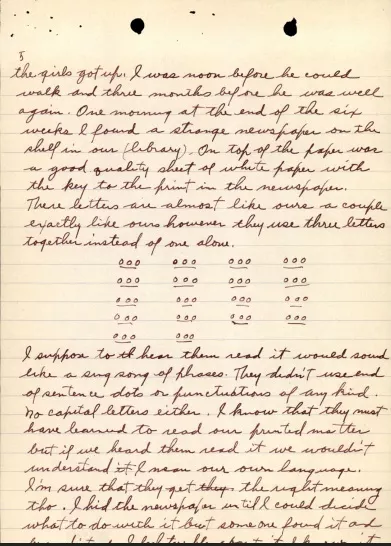 5
the girls got up. I was noon before he could
walk and three months before he was well
again. One morning at the end of the six
weeks I found a strange newspaper on the
shelf in our (library). On top of the paper was
a good quality sheet of white paper with
the key to the print in the newspaper.
There letters are almost like ours a couple
exactly like ours however they use three letters
together instead of one alone.
ooo ooo ooo ooo
ooo ooo ooo ooo
ooo ooo ooo ooo
ooo ooo ooo ooo
ooo ooo
I suppose to th hear them read it would soud
like a sing song of phrases. They didn't use end
of sentence dots or punctuations of any kind.
No capital letters either. I know that they must
have learned to read our printed matter
but if we heard them read it we wouldn't
understand it I mean our own language.
I'm sure that they get they the right meaning
tho. I hid the newspaper until I could decide
what to do with it but someone found it and